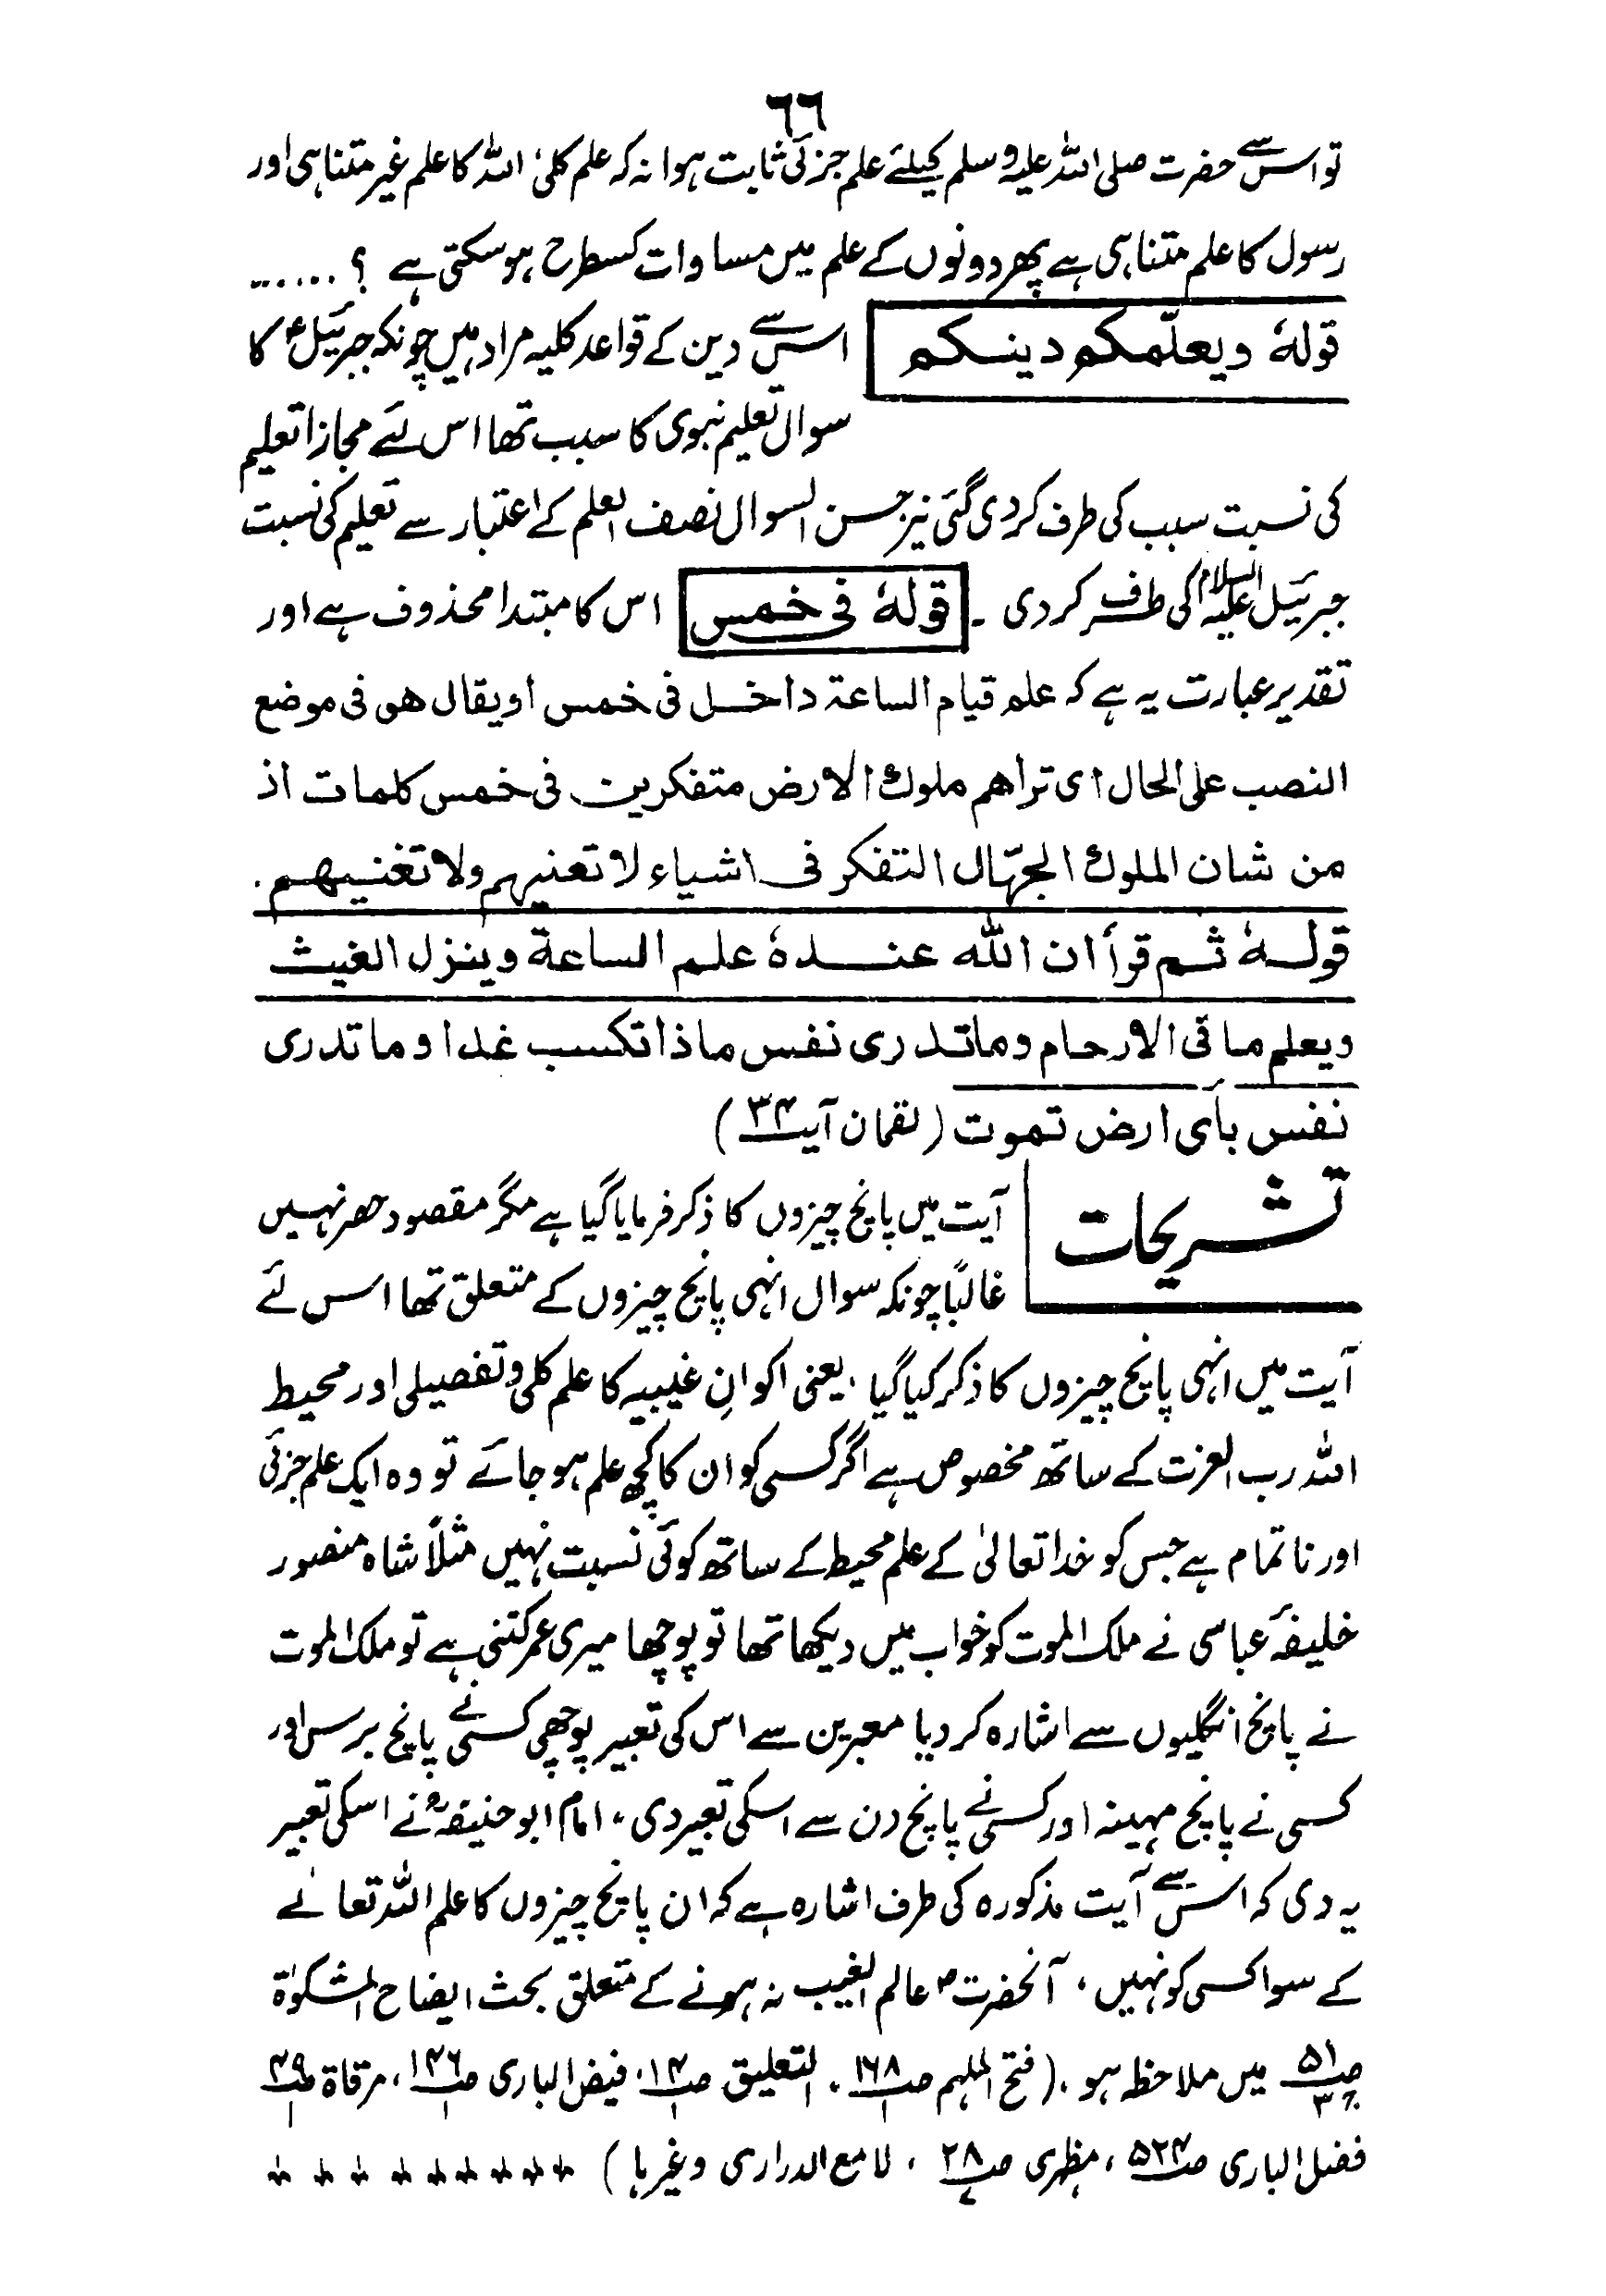 ٦٦
تو اس سے حضرت صلی اللہ علیہ وسلم کیلئے علم جزئی ثابت ہوا نہ کہ علم کلی اللہ کا علم غیر متناہی اور
رسول کا علم متناہی ہے پھر دونوں کے علم میں مساوات کسطرح ہو سکتی ہے ؟ ......
قولہٗ ویعلّمکم دینکم اس سے دین کے قواعد کلیہ مراد ہیں چونکہ جبرئیلؑ کا
سوال تعلیم نبوی کا سبب تھا اس لئے مجازا تعلیم
کی نسبت سبب کی طرف کر دی گئی نیز حسن السوال نصف العلم کے اعتبار سے تعلیم کی نسبت
جبرئیل علیہ السلام کی طرف کر دی ۔ قولہٗ فی خمس اس کا مبتدا محذوف ہے اور
تقدیر عبارت یہ ہے کہ علم قیام الساعۃ داخل فی خمس أو یقال هی فی موضع
النصب علی الحال ای تراهم ملوك الارض متفکرین فی خمس کلمات اذ
من شان الملوك الجهّال التفکر فی اشیاء لا تعنیهم ولا تغنیهم .
قولہٗ ثم قرأ ان الله عندہٗ علم الساعة وینزل الغیث
ویعلم ما فی الارحام وما تدری نفس ماذا تکسب غدا وما تدری
نفس بأی ارض تموت ( لقمان آیت ۳۴ )
تشریحات آیت میں پانچ چیزوں کا ذکر فرمایا گیا ہے مگر مقصود حصر نہیں
غالبًا چونکہ سوال انہی پانچ چیزوں کے متعلق تھا اس لئے
آیت میں انہی پانچ چیزوں کا ذکر کیا گیا ، یعنی اکوانِ غیبیہ کا علم کلی وتفصیلی اور محیط
اللہ رب العزت کے ساتھ مخصوص ہے اگر کسی کو ان کا کچھ علم ہو جائے تو وہ ایک علم جزئی
اور ناتمام ہے جس کو خدا تعالیٰ کے علم محیط کے ساتھ کوئی نسبت نہیں مثلًا شاہ منصور
خلیفۂ عباسی نے ملک الموت کو خواب میں دیکھا تھا تو پوچھا میری عمر کتنی ہے تو ملک الموت
نے پانچ انگلیوں سے اشارہ کر دیا معبرین سے اس کی تعبیر پوچھی کسی نے پانچ برس اور
کسی نے پانچ مہینہ اور کسی نے پانچ دن سے اسکی تعبیر دی ، امام ابو حنیفہؒ نے اسکی تعبیر
یہ دی کہ اس سے آیت مذکورہ کی طرف اشارہ ہے کہ ان پانچ چیزوں کا علم اللہ تعالےٰ
کے سوا کسی کو نہیں ، آنحضرتؐ عالم الغیب نہ ہونے کے متعلق بحث ایضاح المشکوٰۃ
ص۵۱ میں ملاحظہ ہو . ( فتح الملہم ص۱۶۸/۱ ، التعلیق ص۱۴/۱ ، فیض الباری ص۱۴۶/۱ ، مرقاۃ ص۴۹/۱
فضل الباری ص۵۲۴ ، مظہری ص۲۸ ، لامع الدراری وغیرہا )